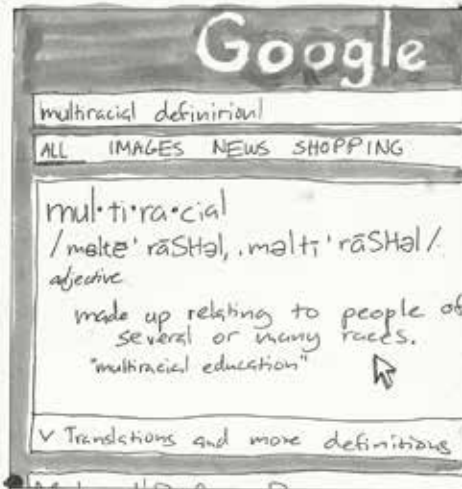 Google
multiracial definirion
ALL IMAGES NEWS SHOPPING
mul·ti·ra·cial
/məltē'rāSHəl, ˌməltī'rāSHəl/
adjective
made up relating to people of
several or many races.
"multiracial education"
v Translations and more definitions